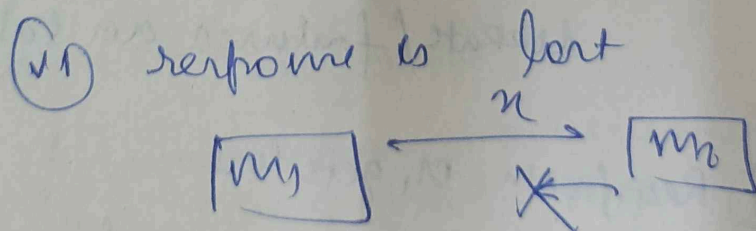 (vi) response is lost
n
m1 m2